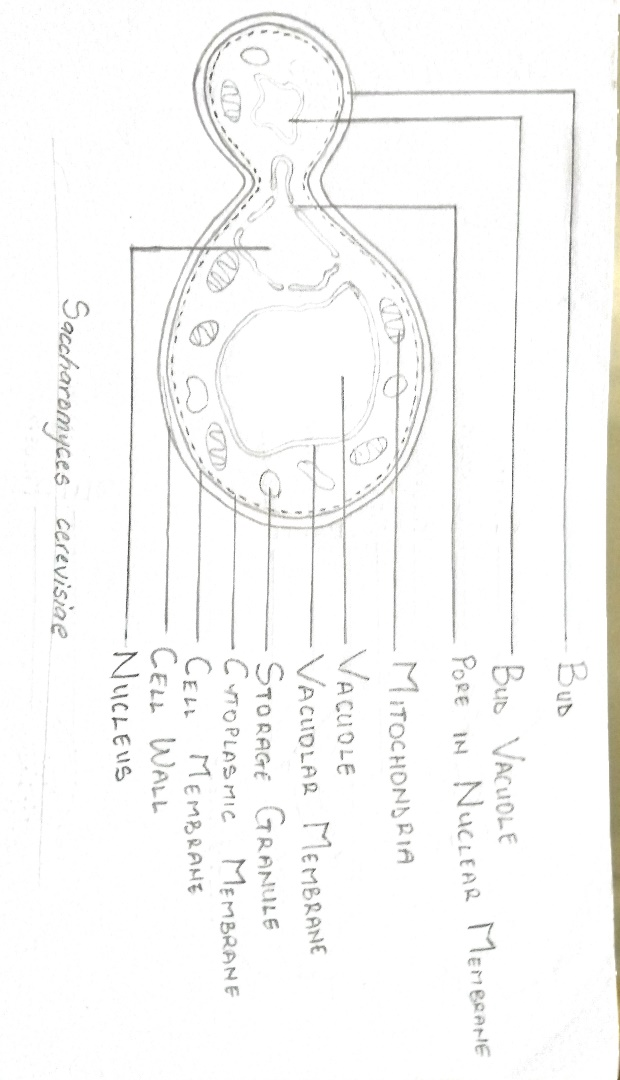 BUD
BUD VACUOLE
PORE IN NUCLEAR MEMBRANE
MITOCHONDRIA
VACUOLE
VACUOLAR MEMBRANE
STORAGE GRANULE
CYTOPLASMIC MEMBRANE
CELL MEMBRANE
CELL WALL
NUCLEUS
Saccharomyces cerevisiae